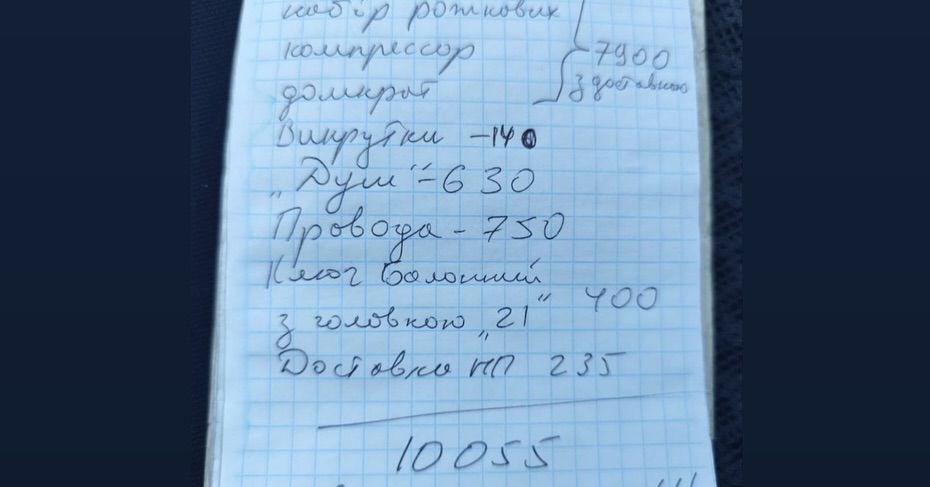 набір рожкових
компрессор
7900
домкрат
з доставкою
Викрутки - 140
"Душ" - 630
Провода - 750
Ключ балонний
400
з головкою "21"
Доставка НП 235
10055